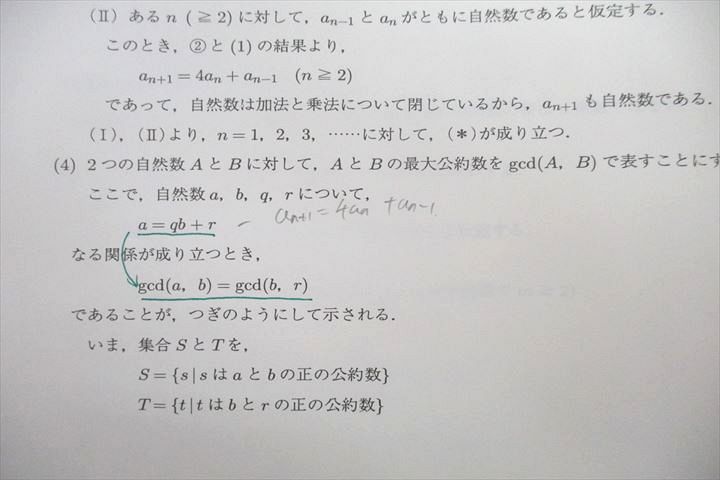 (II) ある n ( ≧ 2) に対して, aₙ₋₁ と aₙ がともに自然数であると仮定する.
このとき, ②と (1) の結果より,
aₙ₊₁ = 4aₙ + aₙ₋₁ (n ≧ 2)
であって, 自然数は加法と乗法について閉じているから, aₙ₊₁ も自然数である.
(I), (II)より, n = 1, 2, 3, ……に対して, (*)が成り立つ.
(4) 2つの自然数 A と B に対して, A と B の最大公約数を gcd(A, B) で表すことにす
ここで, 自然数 a, b, q, r について,
a = qb + r – aₙ₊₁ = 4aₙ + aₙ₋₁
なる関係が成り立つとき,
gcd(a, b) = gcd(b, r)
であることが, つぎのようにして示される.
いま, 集合 S と T を,
S = {s | s は a と b の正の公約数}
T = {t | t は b と r の正の公約数}